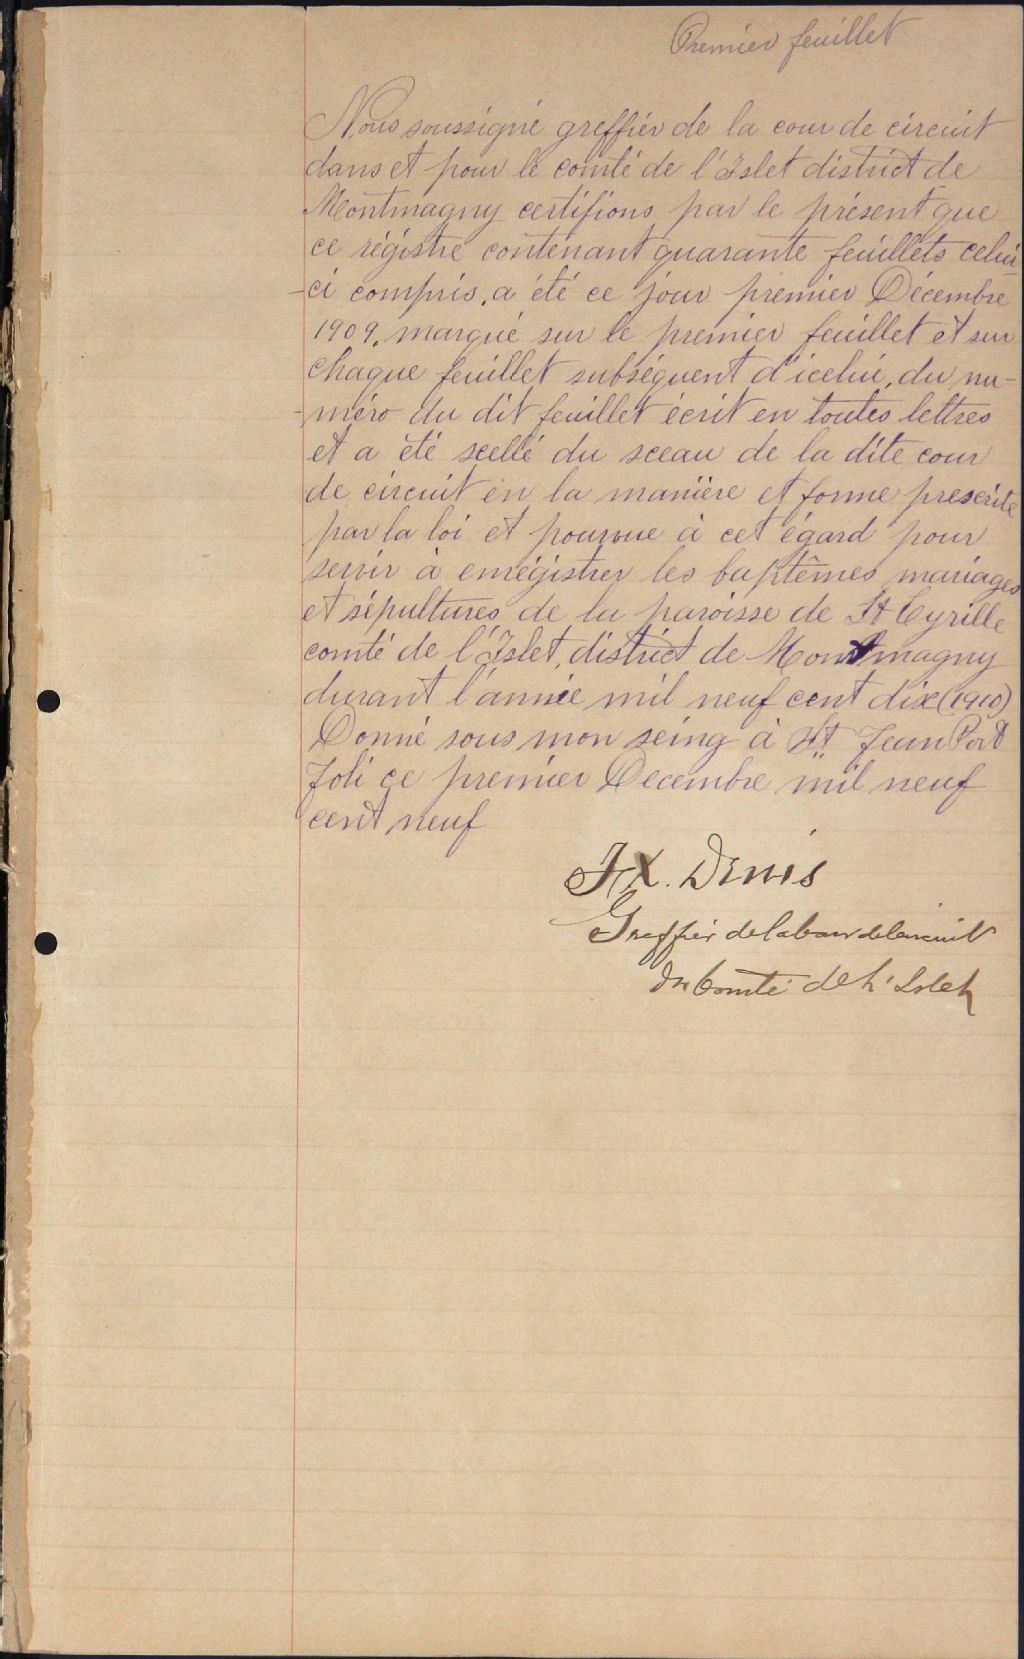 Premier feuillet
Nous soussigné greffier de la cour de circuit
dans et pour le comté de l'Islet district de
Montmagny certifions par le présent que
ce régistre contenant quarante feuillets celui
-ci compris, a été ce jour premier Décembre
1909, marqué sur le premier feuillet et sur
chaque feuillet subséquent d'icelui, du nu-
-méro du dit feuillet écrit en toutes lettres
et a été scellé du sceau de la dite cour
de circuit en la manière et forme prescrite
par la loi et pourvue à cet égard pour
servir à enrégistrer les baptêmes mariages
et sépultures de la paroisse de St Cyrille
comté de l'Islet, district de Montmagny
durant l'année mil neuf cent dix (1910)
Donné sous mon seing à St Jean Port
Joli ce premier Decembre mil neuf
cent neuf
FX. Denis
Greffier de la Cour de Circuit
du Comté de L'Islet